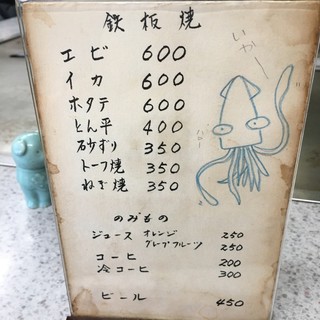 鉄板焼
エビ 600
イカ 600
ホタテ 600
とん平 400
砂ずり 350
トーフ焼 350
ねぎ焼 350
のみもの
ジュース オレンジ 250
グレプフルーツ 250
コーヒ 200
冷コーヒ 300
ビール 450
いやー